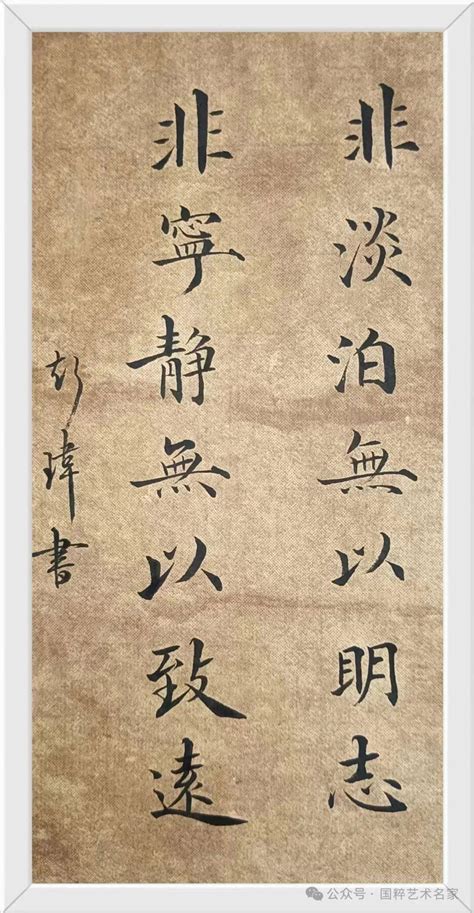 非淡泊無以明志
非寧靜無以致遠
彭瑋書
公众号·国粹艺术名家